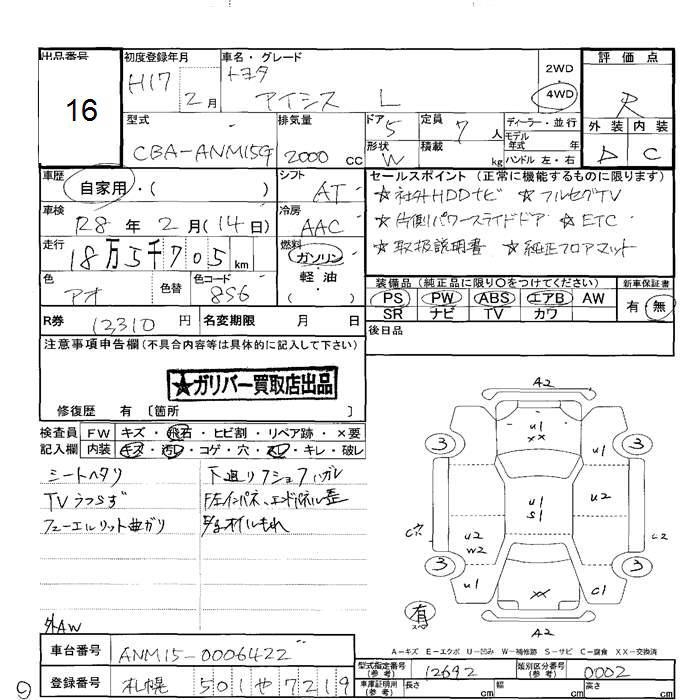 出品番号
16
初度登録年月
H17
2月
車名・グレード
トヨタ
アイシス L
2WD
4WD
評価点
R
外装 内装
D C
型式
CBA-ANM15G
排気量
2000 cc
ドア
5
形状
W
定員
7 人
積載
kg
ディーラー・並行
モデル
年式 年
ハンドル 左・右
車歴
自家用・( )
シフト
AT
車検
R8 年 2 月 (14日)
冷房
AAC
走行
18万5千705 km
燃料
ガソリン
・
軽油
( )
色
アオ
色替
色コード
8S6
R券 12310 円
名変期限 月 日
セールスポイント (正常に機能するものに限ります)
☆社外HDDナビ ☆フルセグTV
☆片側パワースライドドア ☆ETC
☆取扱説明書 ☆純正フロアマット
装備品(純正品に限り○をつけてください)
PS PW ABS エアB AW
SR ナビ TV カワ
新車保証書
有・無
後日品
注意事項申告欄(不具合内容等は具体的に記入して下さい)
★ガリバー買取店出品
修復歴 有 〔箇所 〕
検査員 FW キズ・飛石・ヒビ割・リペア跡・×要
記入欄 内装 キズ・汚レ・コゲ・穴・スレ・キレ・破レ
シートヘタリ
TVうつらず
フューエルリット曲ガリ
下廻リ
オイルもれ
外AW
A2
u1
xx
3
3
u1
S1
u2
u2
W2
C2
3
3
u1
xx
C1
有
A2
A−キズ E−エクボ U−凹み W−補修跡 S−サビ C−腐食 XX−交換済
車台番号 ANM15-0006422
登録番号 札幌 501や7219
型式指定番号
(参考)
12692
類別区分番号
(参考)
0002
車庫証明用
(参考)
長さ cm
幅 cm
高さ cm